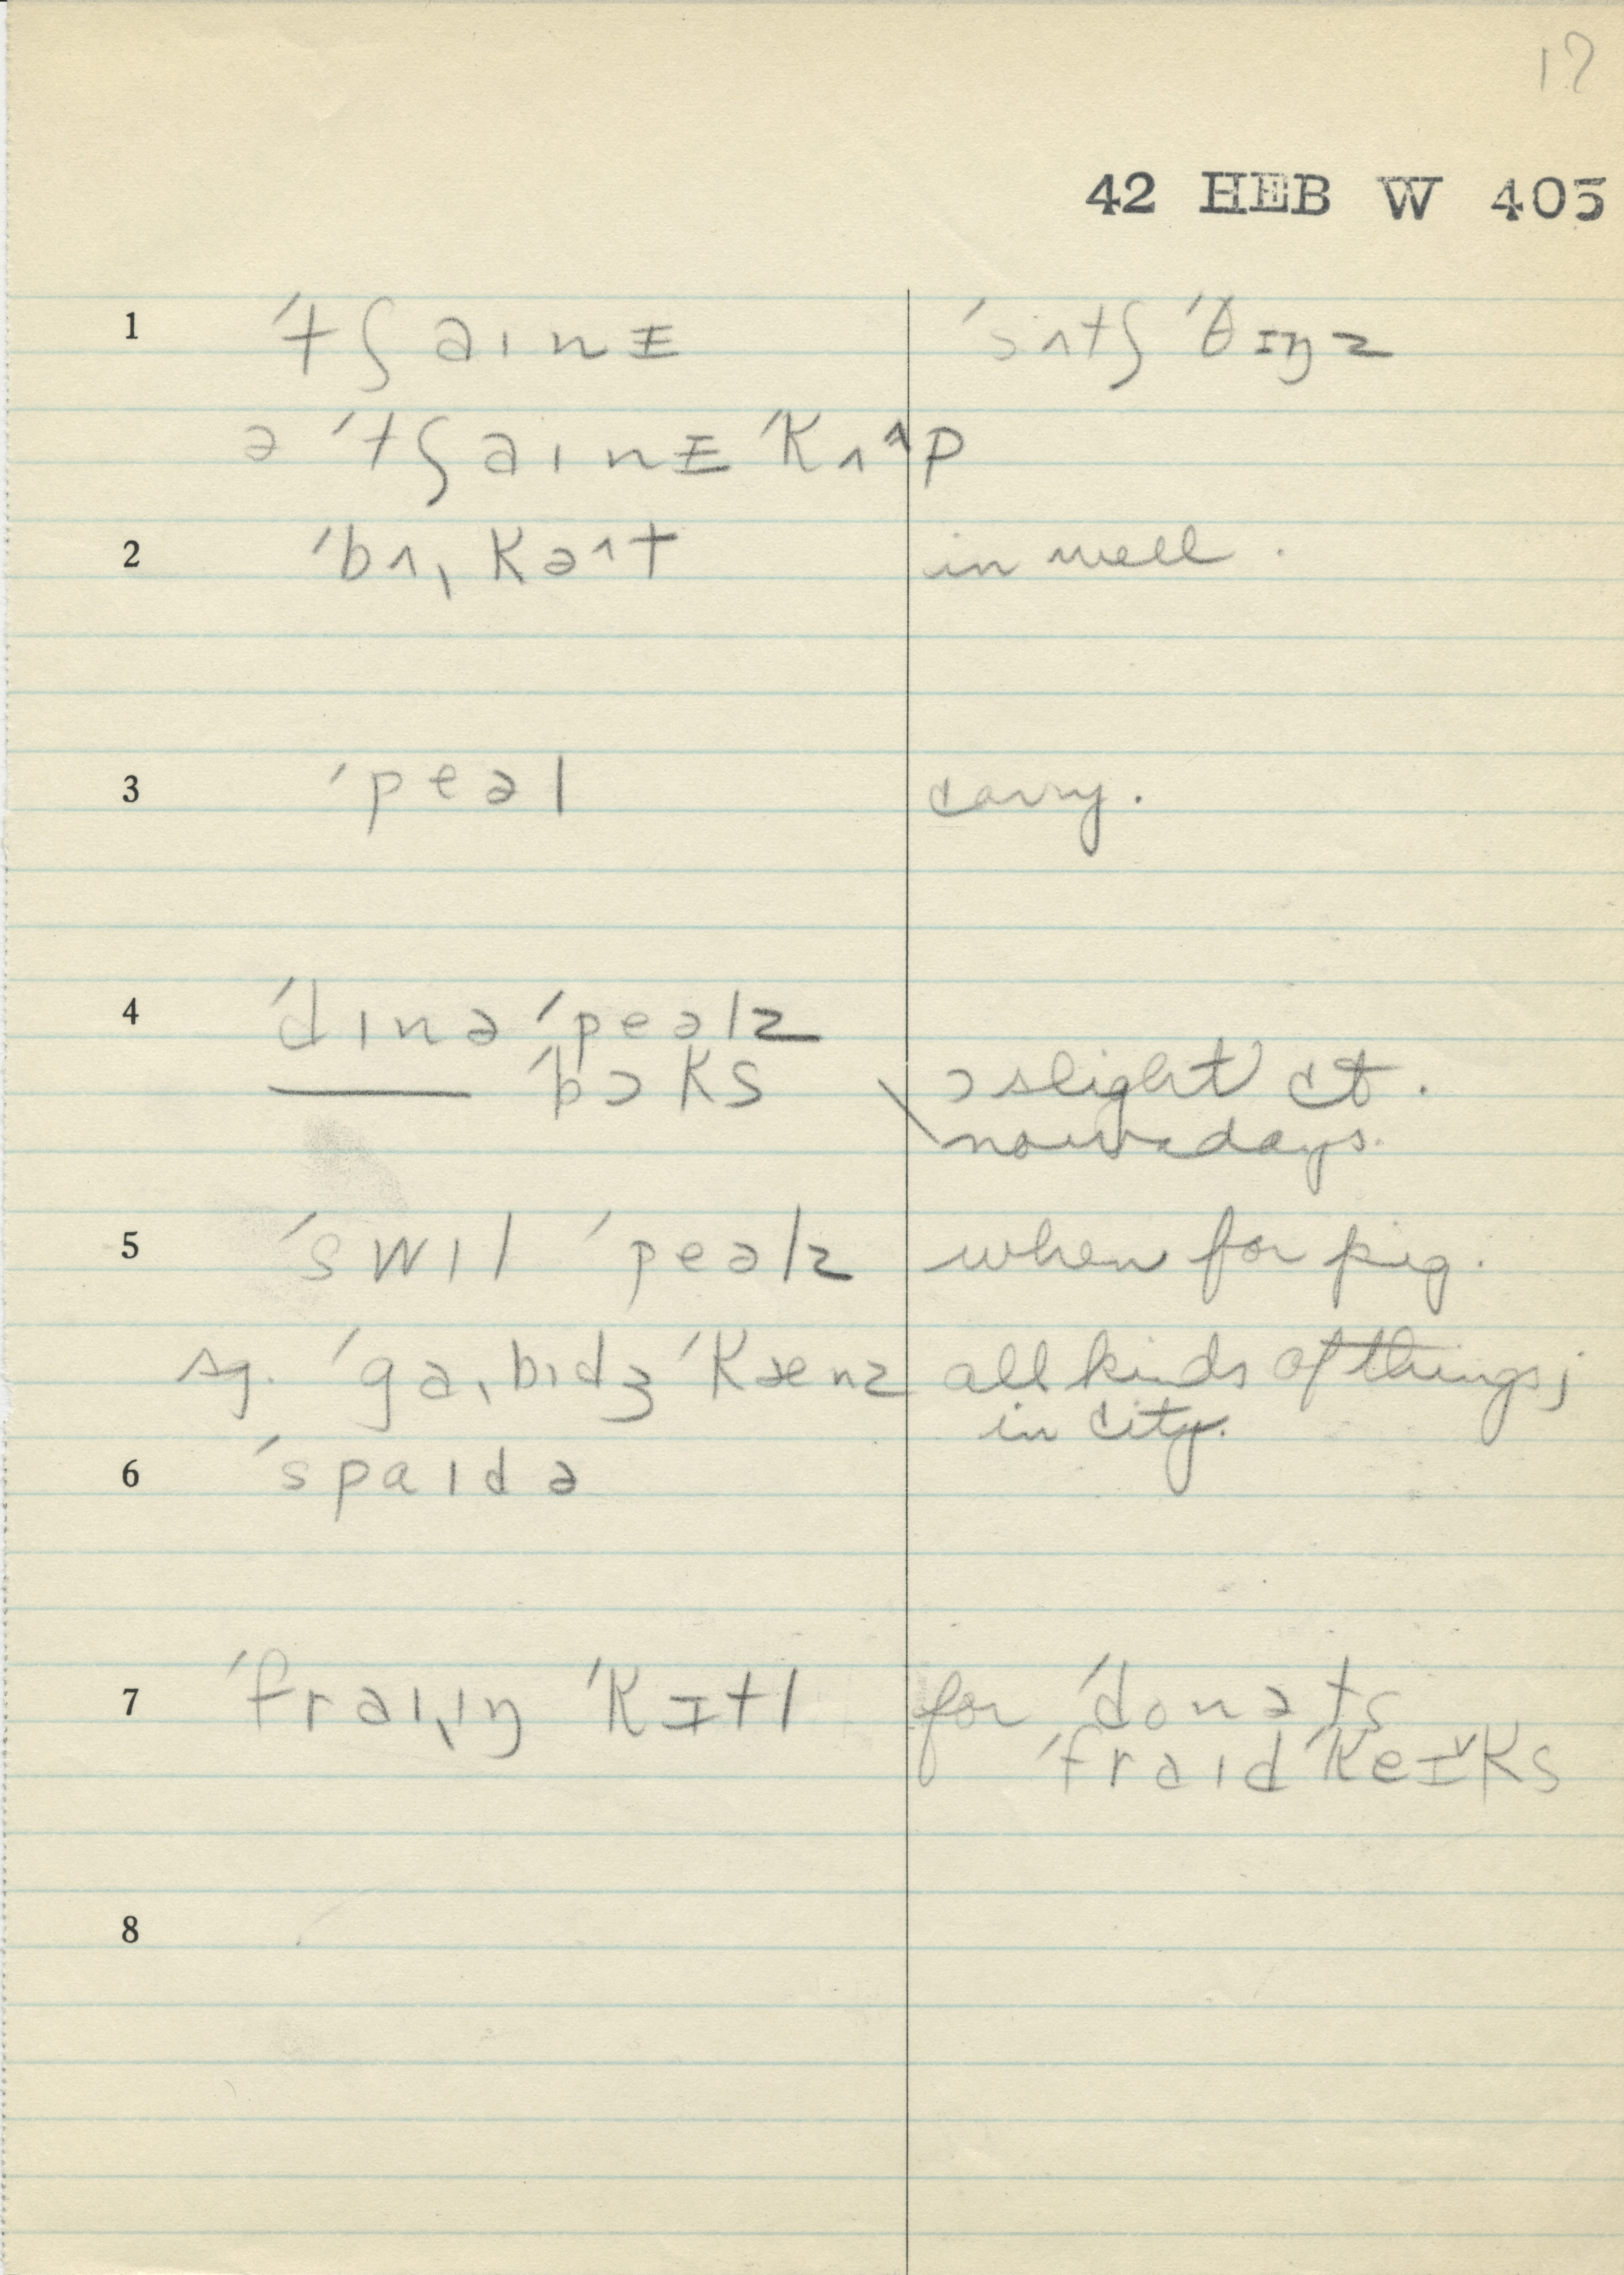 17
42 HEB W 405
1 ˈtʃaɪnɪ ˈsʌtʃ ˈθɪŋz
ə ˈtʃaɪnɪ ˈkʌ˄p
2 ˈbʌˌkə˄t in well.
3 ˈpeəl carry.
4 ˈdɪnə ˈpeəlz
—— ˈbɔks ɔ slight ct.
nowadays.
5 ˈswɪl ˈpeəlz when for pig.
sg. ˈgaˌbɪdʒ ˈkænz all kinds of things;
in city.
6 ˈspaɪdə
7 ˈfraɪˌɪŋ ˈkɪtl for ˈdonəts
ˈfraɪd ˈkeɪ˅ks
8